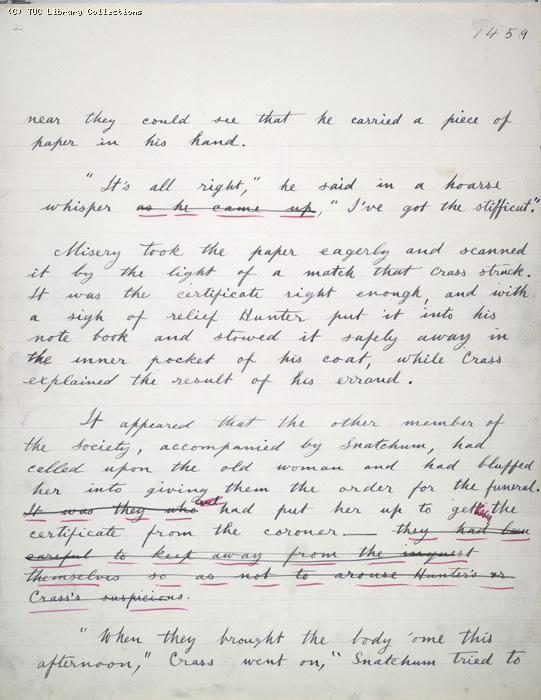 (C) TUC Library Collections
1459
near they could see that he carried a piece of
paper in his hand.
"It's all right," he said in a hoarse
whisper as he came up, "I've got the stifficut."
Misery took the paper eagerly and scanned
it by the light of a match that Crass struck.
It was the certificate right enough, and with
a sigh of relief Hunter put it into his
note book and stowed it safely away in
the inner pocket of his coat, while Crass
explained the result of his errand.
It appeared that the other member of
the society, accompanied by Snatchum, had
called upon the old woman and had bluffed
her into giving them the order for the funeral.
It was they who and had put her up to getting the
certificate from the coroner — they had been
careful to keep away from the inquest
themselves so as not to arouse Hunter's or
Crass's suspicions.
"When they brought the body 'ome this
afternoon," Crass went on, "Snatchum tried to